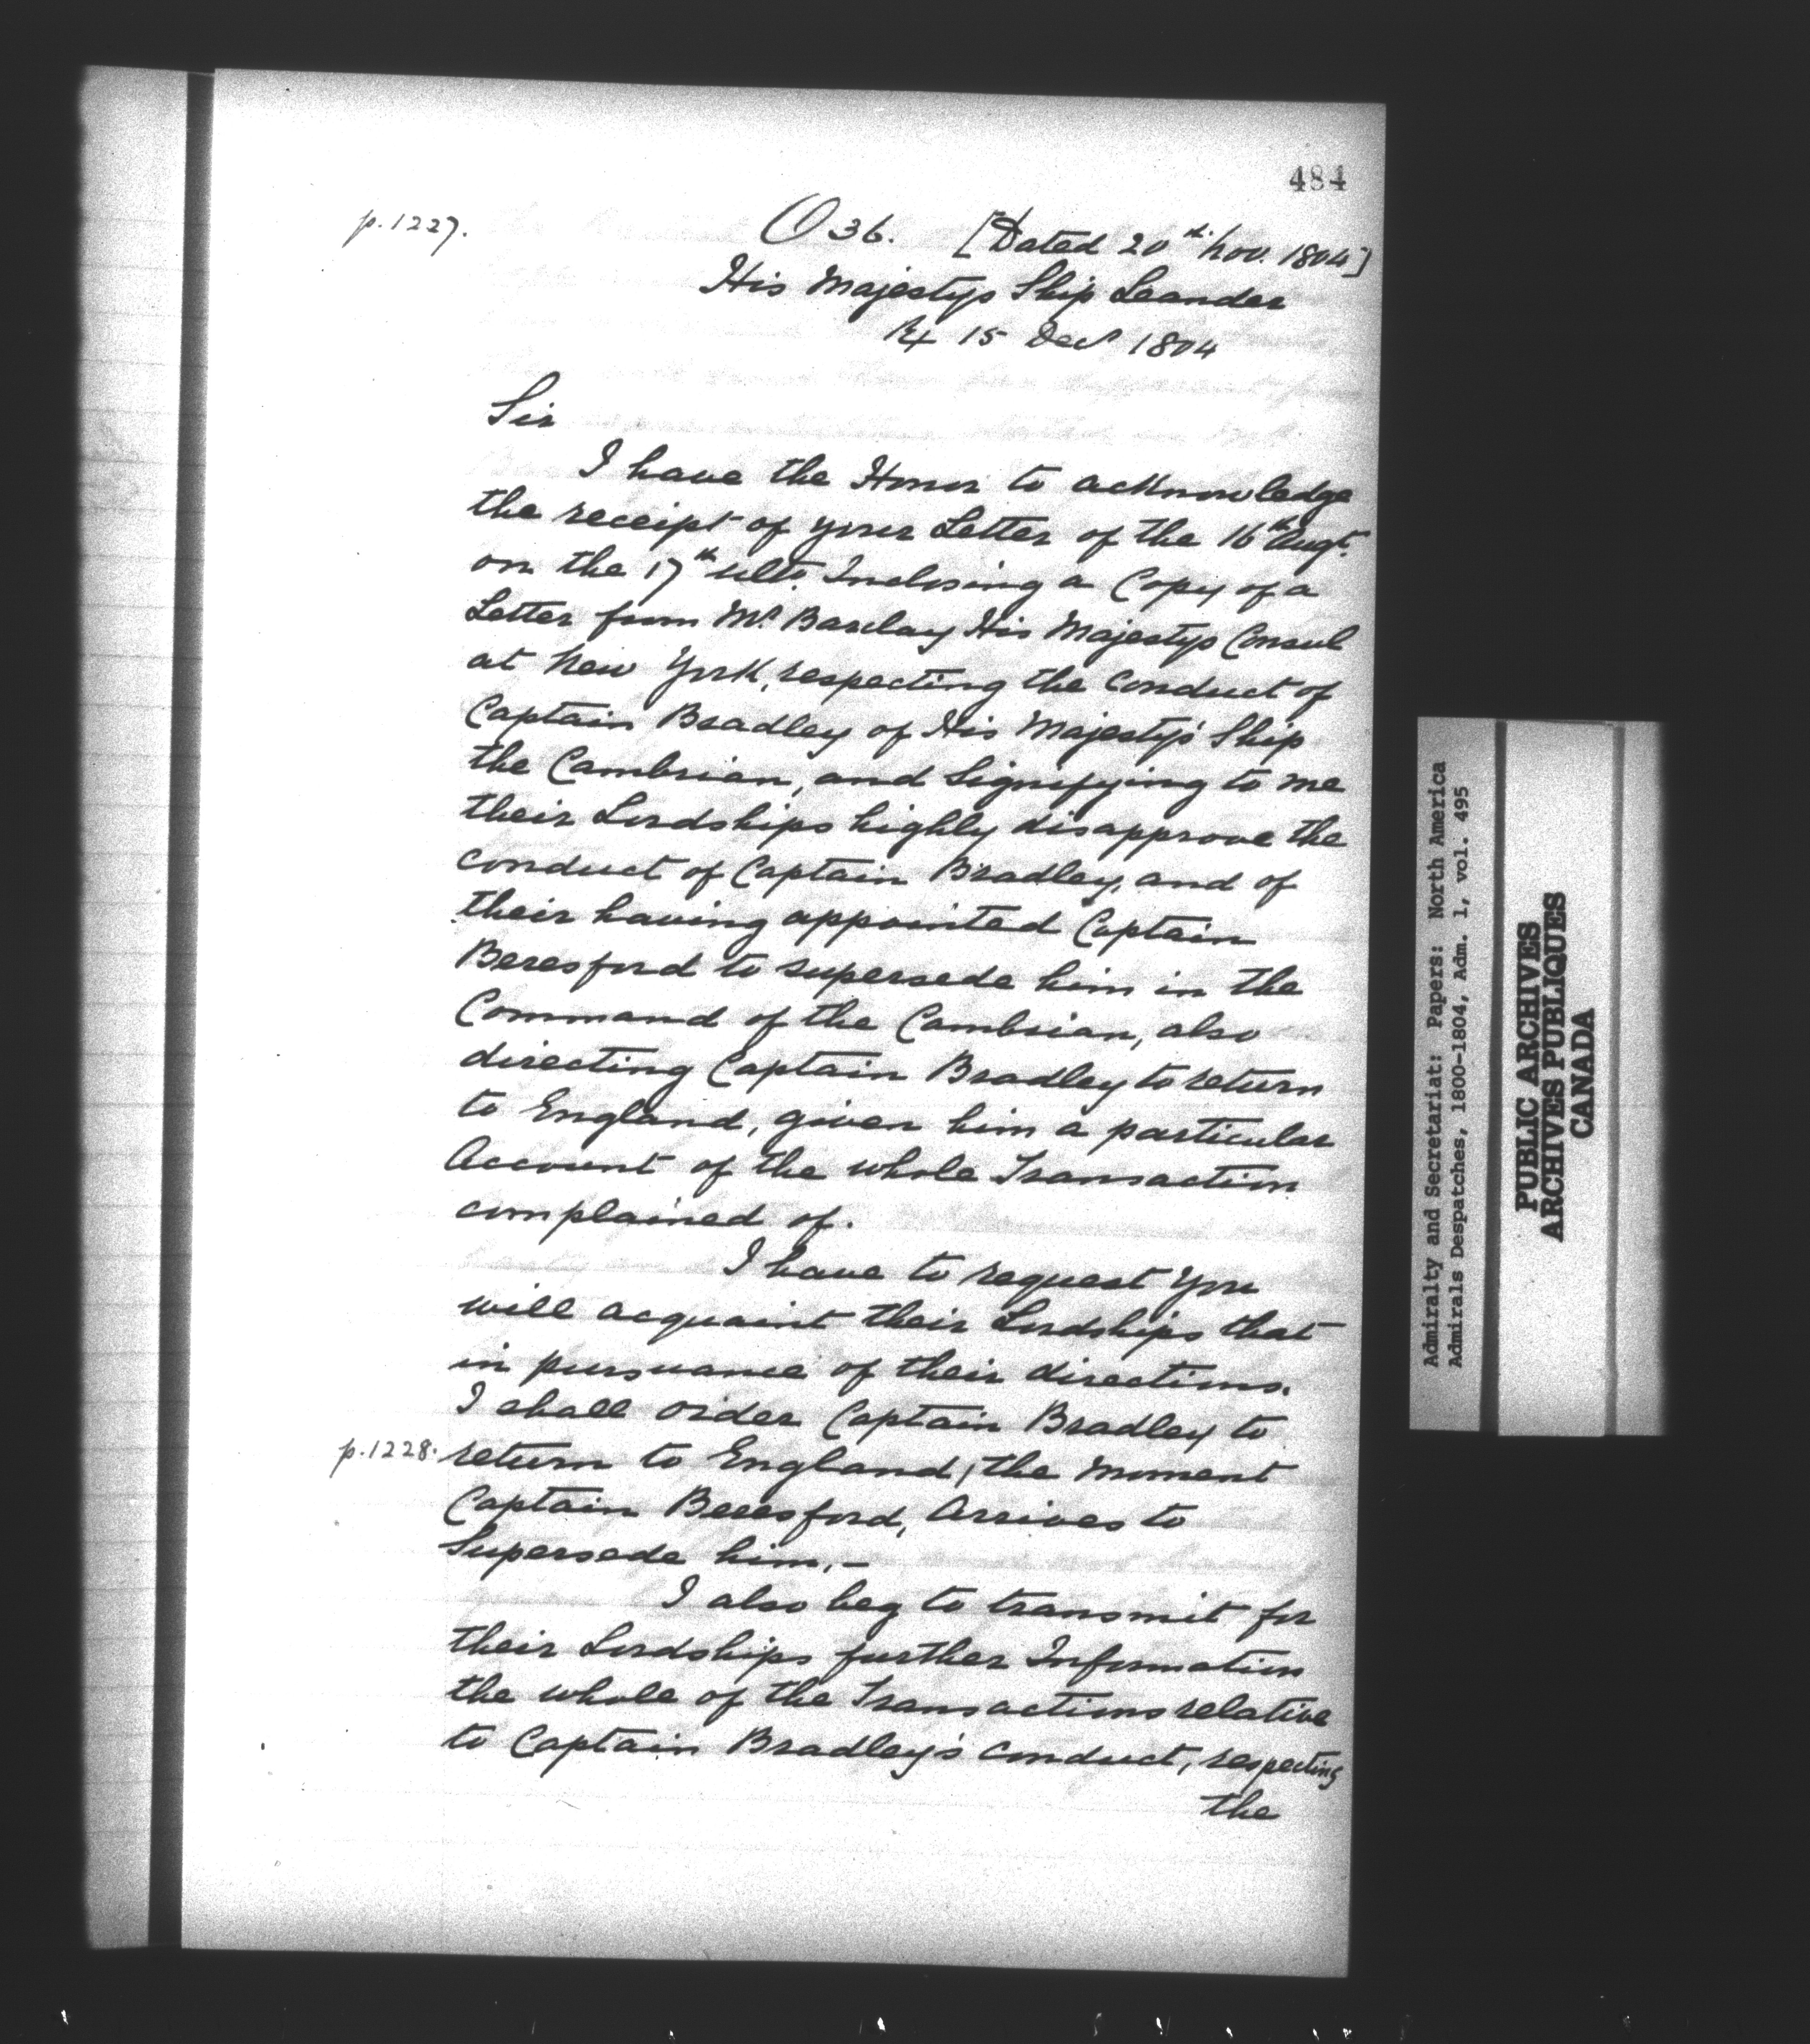 484
p. 1227.
O 36. [Dated 20th Nov. 1804]
His Majestys Ship Leander
15 Decr 1804
Sir
I have the Honor to acknowledge
the receipt of your Letter of the 16th Augt.
on the 17th ulto. Inclosing a Copy of a
Letter from Mr. Barclay His Majestys Consul
at New York, respecting the conduct of
Captain Bradley of His Majesty's Ship
the Cambrian, and Signifying to me
their Lordships highly disapprove the
conduct of Captain Bradley, and of
their having appointed Captain
Beresford to supersede him in the
Command of the Cambrian, also
directing Captain Bradley to return
to England, given him a particular
Account of the whole Transaction
complained of.
I have to request you
will acquaint their Lordships that
in pursuance of their directions.
I shall order Captain Bradley to
p. 1228. return to England, the moment
Captain Beresford, Arrives to
Supersede him,-
I also beg to transmit for
their Lordships further Information
the whole of the Transactions relative
to Captain Bradley's conduct, respecting
the
Admiralty and Secretariat: Papers: North America
Admirals Despatches, 1800-1804, Adm. 1, vol. 495
PUBLIC ARCHIVES
ARCHIVES PUBLIQUES
CANADA